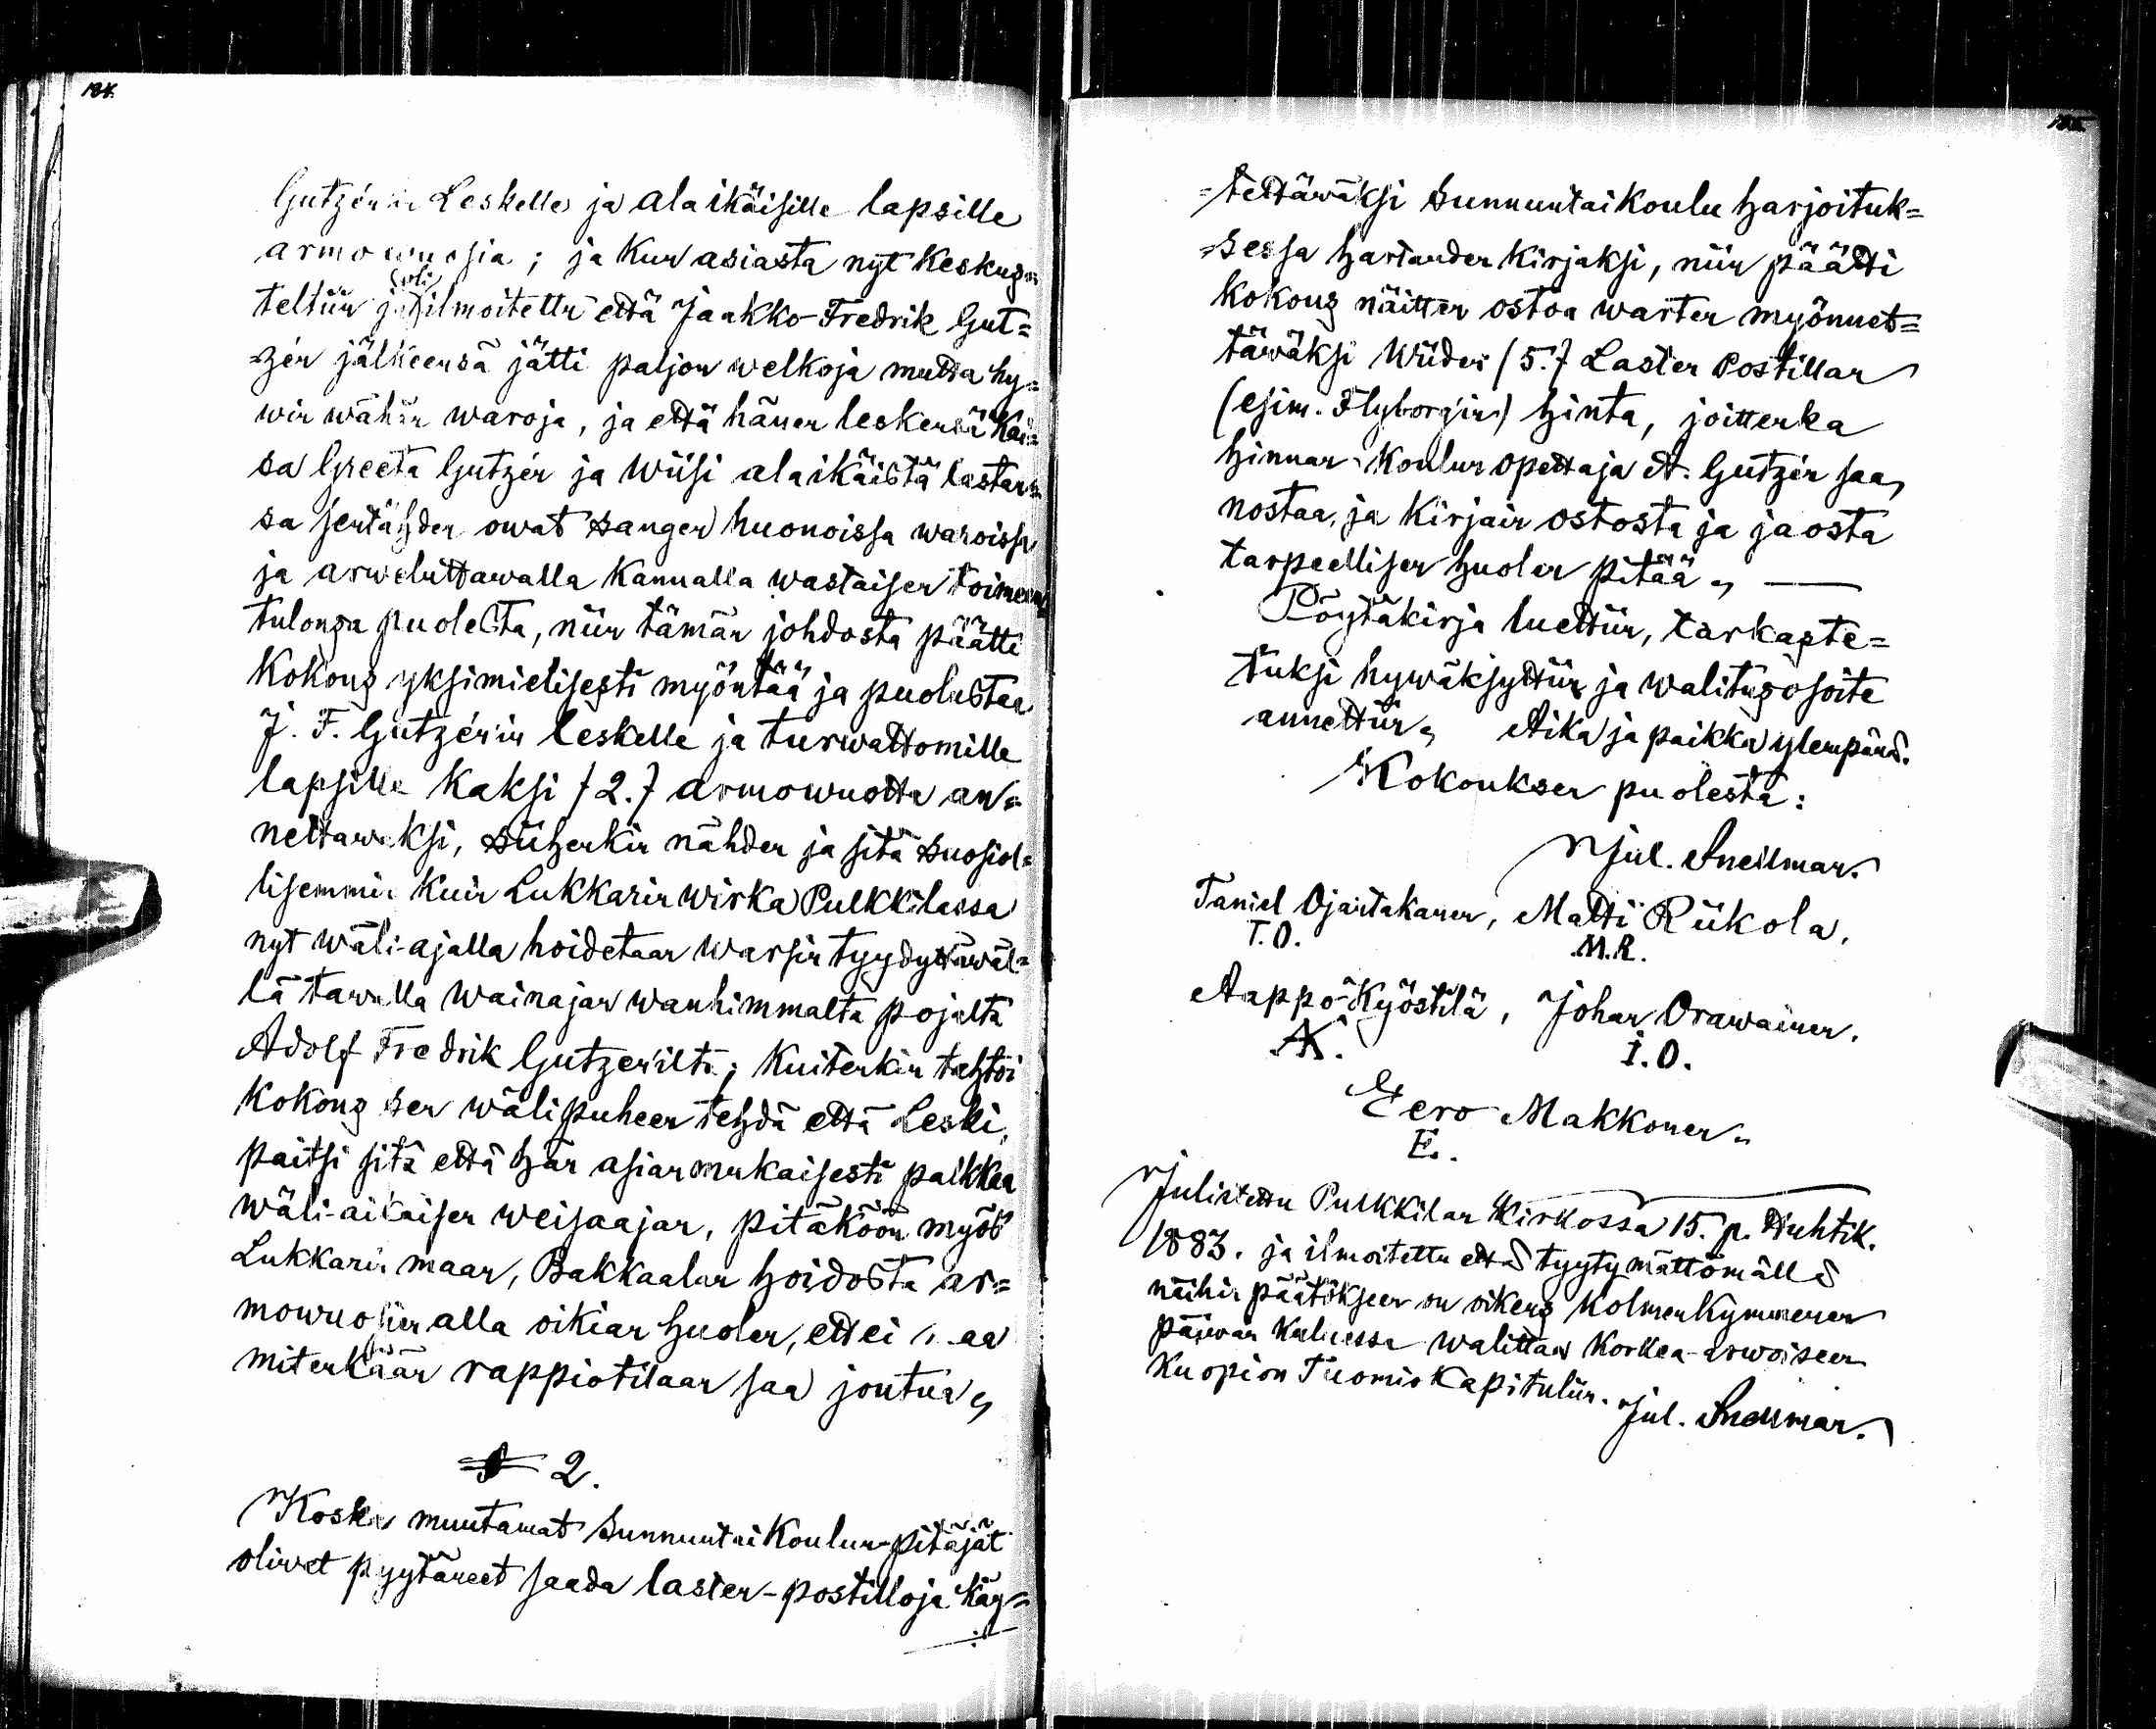 184.
Gutzén'in Leskelle ja alaikäisille lapsille
armowuosia; ja kun asiasta nyt keskus=
teltiin ja oli ilmoitettu että Jaakko Fredrik Gut=
=zén jälkeensä jätti paljon welkoja mutta hy=
win wähän waroja, ja että hänen leskensä Kai=
sa Greeta Gutzén ja wiisi alaikäistä lastan=
sa sentähden owat sangen huonoissa waroissa
ja arweluttawalla kannalla wastaisen toimeen=
tulonsa puolesta, niin tämän johdosta päätti
Kokous yksimielisesti myöntää ja puolustaa
J. F. Gutzén'in leskelle ja turwattomille
lapsille kaksi (2.) armowuotta an=
nettawaksi, siihenkin nähden ja sitä suosiol=
lisemmin kuin Lukkarin wirka Pulkkilassa
nyt wäli-ajalla hoidetaan warsin tyydyttäwäl=
lä tawalla wainajan wanhimmalta pojalta
Adolf Fredrik Gutzén'ilta; kuitenkin tahtoi
Kokous sen wälipuheen tehdä että Leski,
paitsi sitä että hän asianmukaisesti palkkaa
wäli-aikaisen weisaajan, pitäköön myös
Lukkarin maan, Bakkaalan hoidosta ar=
mowuosien alla oikian huolen, ettei maa
mitenkään rappiotilaan saa joutua,
§ 2.
Koska muutamat Sunnuntaikoulun-pitäjät
oliwat pyytäneet saada lasten-postilloja käy=
185.
=tettäwäksi Sunnuntaikoulu harjoituk=
=sessa hartauden kirjaksi, niin päätti
Kokous näitten ostoa warten myönnet=
täwäksi Wiiden (5.) Lasten Postillan
(esim. Flyborg'in) hinta, joittenka
hinnan koulun opettaja A. Gutzén saa,
nostaa, ja kirjain ostosta ja jaosta
tarpeellisen huolen pitää, —
Pöytäkirja luettiin, tarkaste=
tuksi hywäksyttiin ja walitusosoite
annettiin, Aika ja paikka ylempänä.
Kokouksen puolesta:
Jul. Snellman.
Taniel Ojantakanen, Matti Riikola,
T.O. M.R.
Aappo Kyöstilä, Johan Orawainen.
A. I.O.
Eero Makkonen.
E.
Julistettu Pulkkilan Kirkossa 15. p. Huhtik.
1883. ja ilmoitettu että tyytymättömällä
näihin päätöksiin on oikeus Kolmenkymmenen
päiwän kuluessa walittaa Korkea-arwoiseen
Kuopion Tuomiokapituliin. Jul. Snellman.